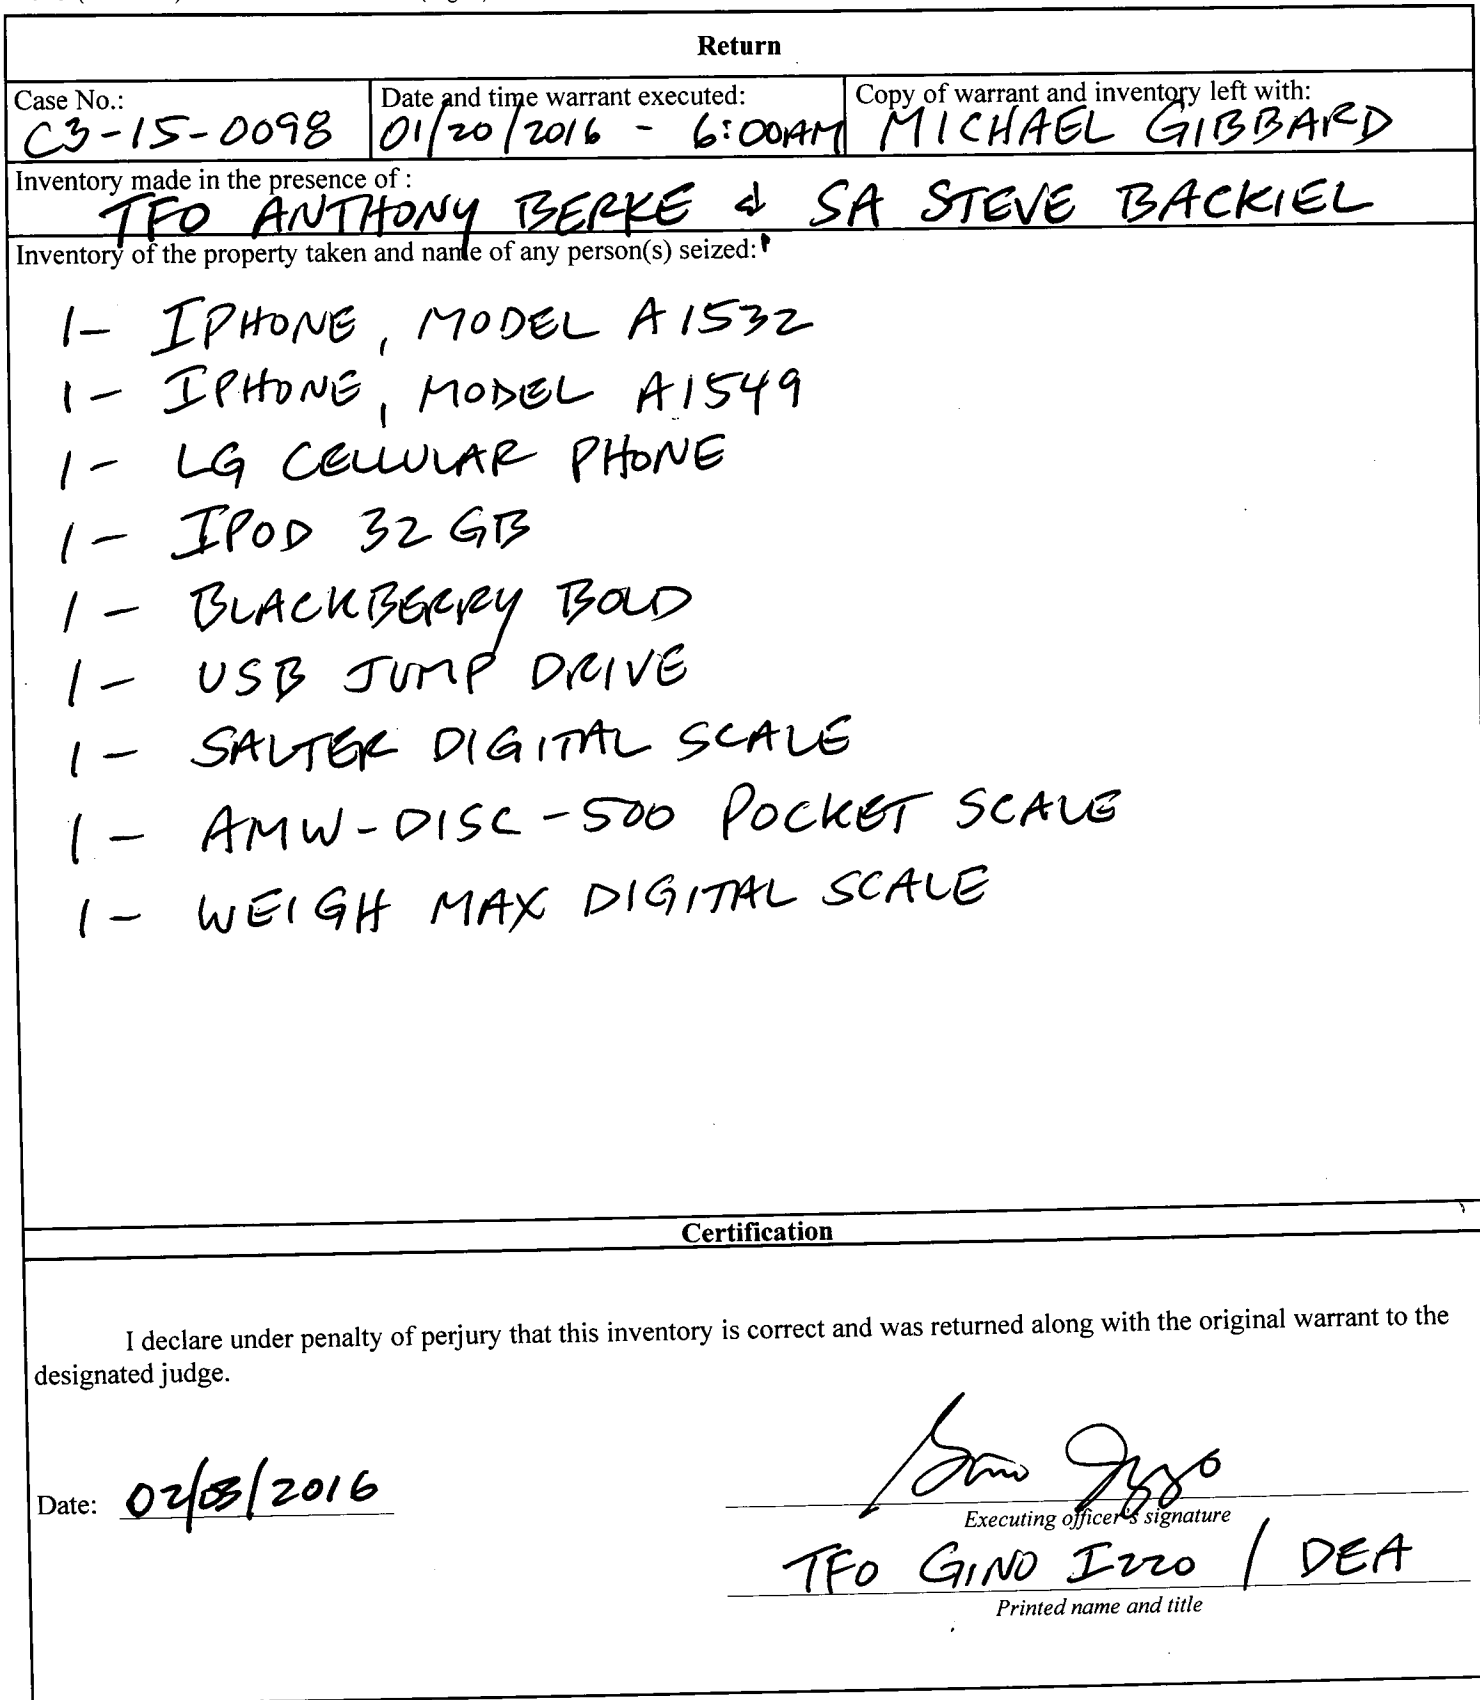 Return
Case No.: Date and time warrant executed: Copy of warrant and inventory left with:
C3-15-0098 01/20/2016 - 6:00AM MICHAEL GIBBARD
Inventory made in the presence of :
TFO ANTHONY BERKE & SA STEVE BACKIEL
Inventory of the property taken and name of any person(s) seized:
1- IPHONE, MODEL A1532
1- IPHONE, MODEL A1549
1- LG CELLULAR PHONE
1- IPOD 32 GB
1- BLACKBERRY BOLD
1- USB JUMP DRIVE
1- SALTER DIGITAL SCALE
1- AMW-DISC-500 POCKET SCALE
1- WEIGH MAX DIGITAL SCALE
Certification
I declare under penalty of perjury that this inventory is correct and was returned along with the original warrant to the
designated judge.
Date: 02/03/2016
Gino Izzo
Executing officer's signature
TFO GINO IZZO / DEA
Printed name and title